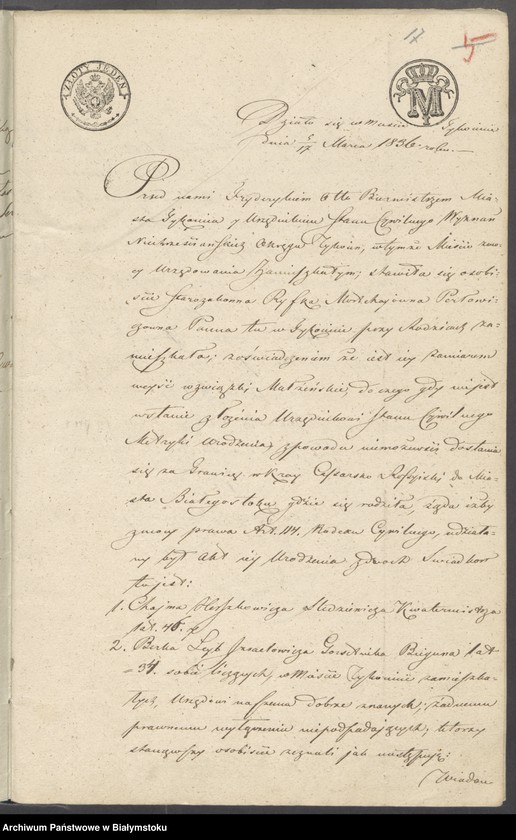 17 5
ZŁOTY JEDEN
M
Działo się w Mieście Tykocinie
dnia 5/17 Marca 1836 roku.
Przed nami Fryderykiem Otto Burmistrzem Mia-
sta Tykocina y Urzędnikiem Stanu Cywilnego Wyznań
Niechrześciańskich Okręgu Tykocin, w tymże Mieście
y Urzędowania Zamieszkałym; stawiła się osobi-
ście Starozakonna Ryfka Mordchajowna Perłowi-
czowna Panna tu w Tykocinie przy Rodzicach za-
mieszkała; z oświadczeniem że jest iey zamiarem
weyść w związki Małżeńskie, do czego gdy nie jest
w stanie złożenia Urzędnikowi Stanu Cywilnego
Metryki Urodzenia, z powodu niemożności dostania
się za Granicę w Kray Cesarsko Rossyiski do Mia-
sta Białegostoku gdzie się rodziła, żąda iżby
z mocy prawa Art. 144. Kodexu Cywilnego, udziela-
ny był Akt iey Urodzenia z dwoch Świadkow
to jest:
1. Chajma Kwatermistrza
lat. 46. y
2. Berka Leyb Izraelowicza lat
34. sobie liczących, w Mieście Tykocinie zamieszka-
łych, Urzędowi naszemu dobrze znanych, żadnemu
prawnemu wyłączeniu niepodpadaiących; ktorzy
stanąwszy osobiście zeznali jak następuje:
Wiadom
Archiwum Państwowe w Białymstoku